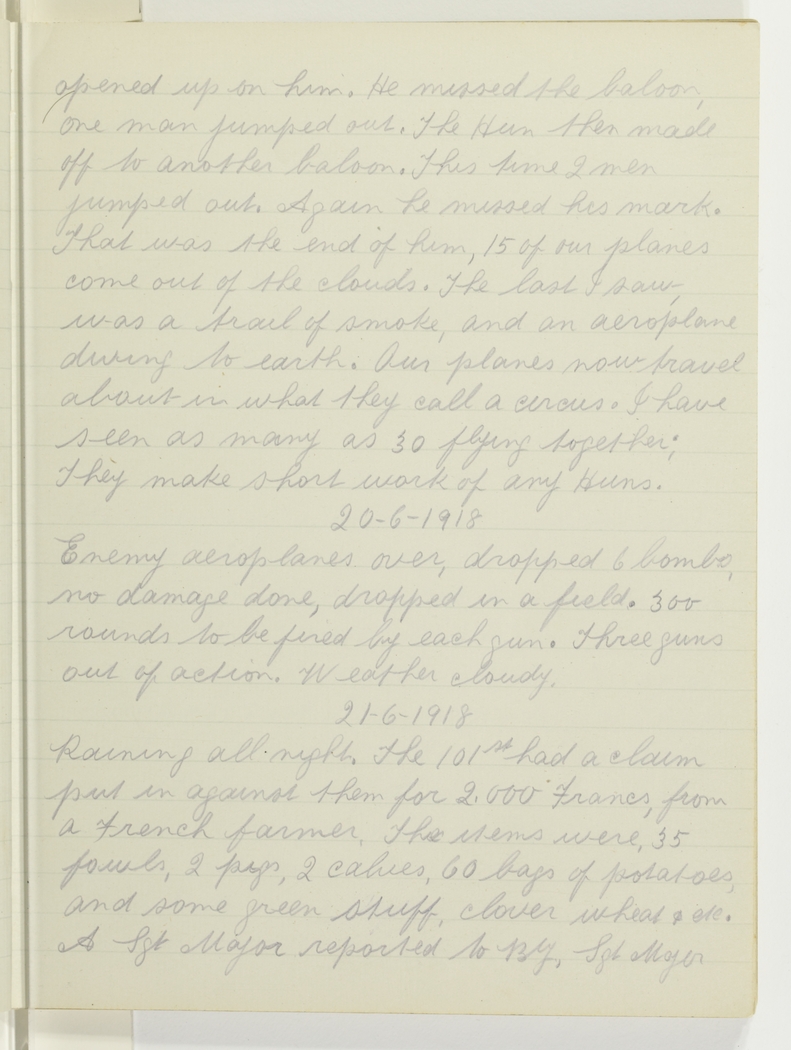 opened up on him. He missed the baloon,
one man jumped out. The Hun then made
off to another baloon. This time 2 men
jumped out. Again he missed his mark.
That was the end of him, 15 of our planes
come out of the clouds. The last I saw,
was a trail of smoke, and an aeroplane
diving to earth. Our planes now travel
about in what they call a circus. I have
seen as many as 30 flying together;
They make short work of any Huns.
20-6-1918
Enemy aeroplanes over, dropped 6 bombs,
no damage done, dropped in a field. 300
rounds to be fired by each gun. Three guns
out of action. Weather cloudy.
21-6-1918
Raining all night. The 101st had a claim
put in against them for 2.000 Francs, from
a French farmer. The items were, 35
fowls, 2 pigs, 2 calves, 60 bags of potatoes,
and some green stuff, clover wheat & etc.
A Sgt Major reported to BY, Sgt Mjor